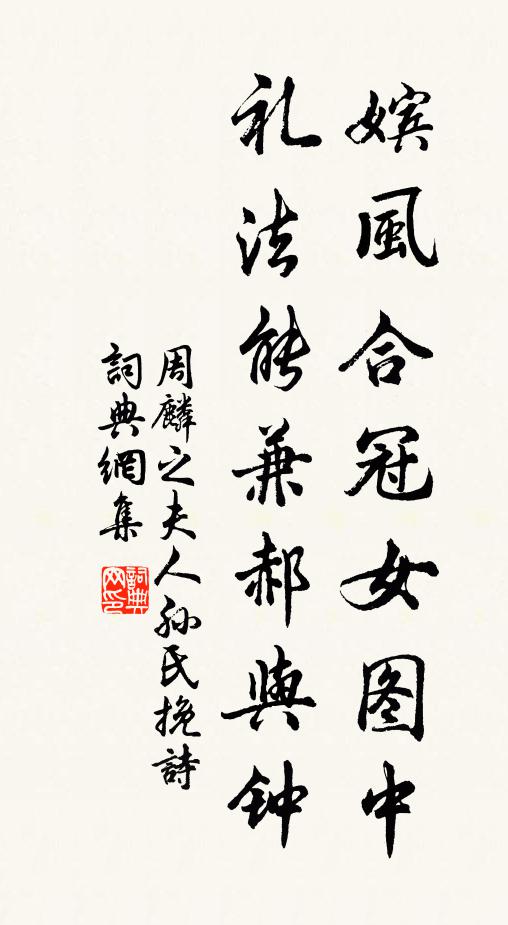 嫔風合冠女图中
礼法能兼郝與钟
周麟之夫人孙氏挽詩
詞典網集
詞典网印